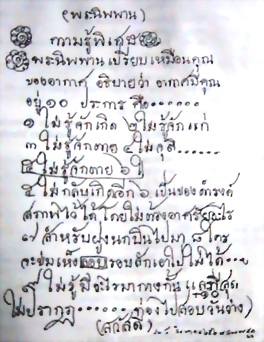 (พระนิพพาน)
ความรู้พิเศษ
พระนิพพานเปรียบเหมือนคุณ
ของอากาศ อธิบายว่า อากาศมีคุณ
อยู่ ๑๐ ประการ คือ......
๑ ไม่รู้จักเกิด ๒ ไม่รู้จักแก่
๓ ไม่รู้จักตาย ๔ ไม่จุติ......
๕ ไม่กลับเกิดอีก ๖ เป็นของดำรงค์
ได้โดยไม่ต้องอาศรัยอะไร
๗ สำหรับฝูงนกบินไปมา ๘ ใคร
จะข่มเหง ไม่ได้...
๙ ไม่รู้มีอะไรมากางกั้น และที่สุด
ไม่ปรากฏ
(สวัสดี)